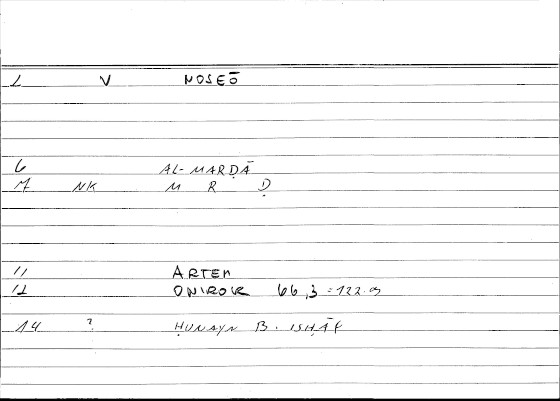 1 V NOSEŌ
6 AL-MARḌĀ
7 NK M R Ḍ
11 ARTEM
12 ONIROCR 66,3 = 122.9
14 ? ḤUNAYN B. ISḤĀQ